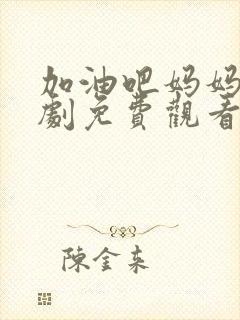 加油吧妈妈
劇免費觀看
陳金来